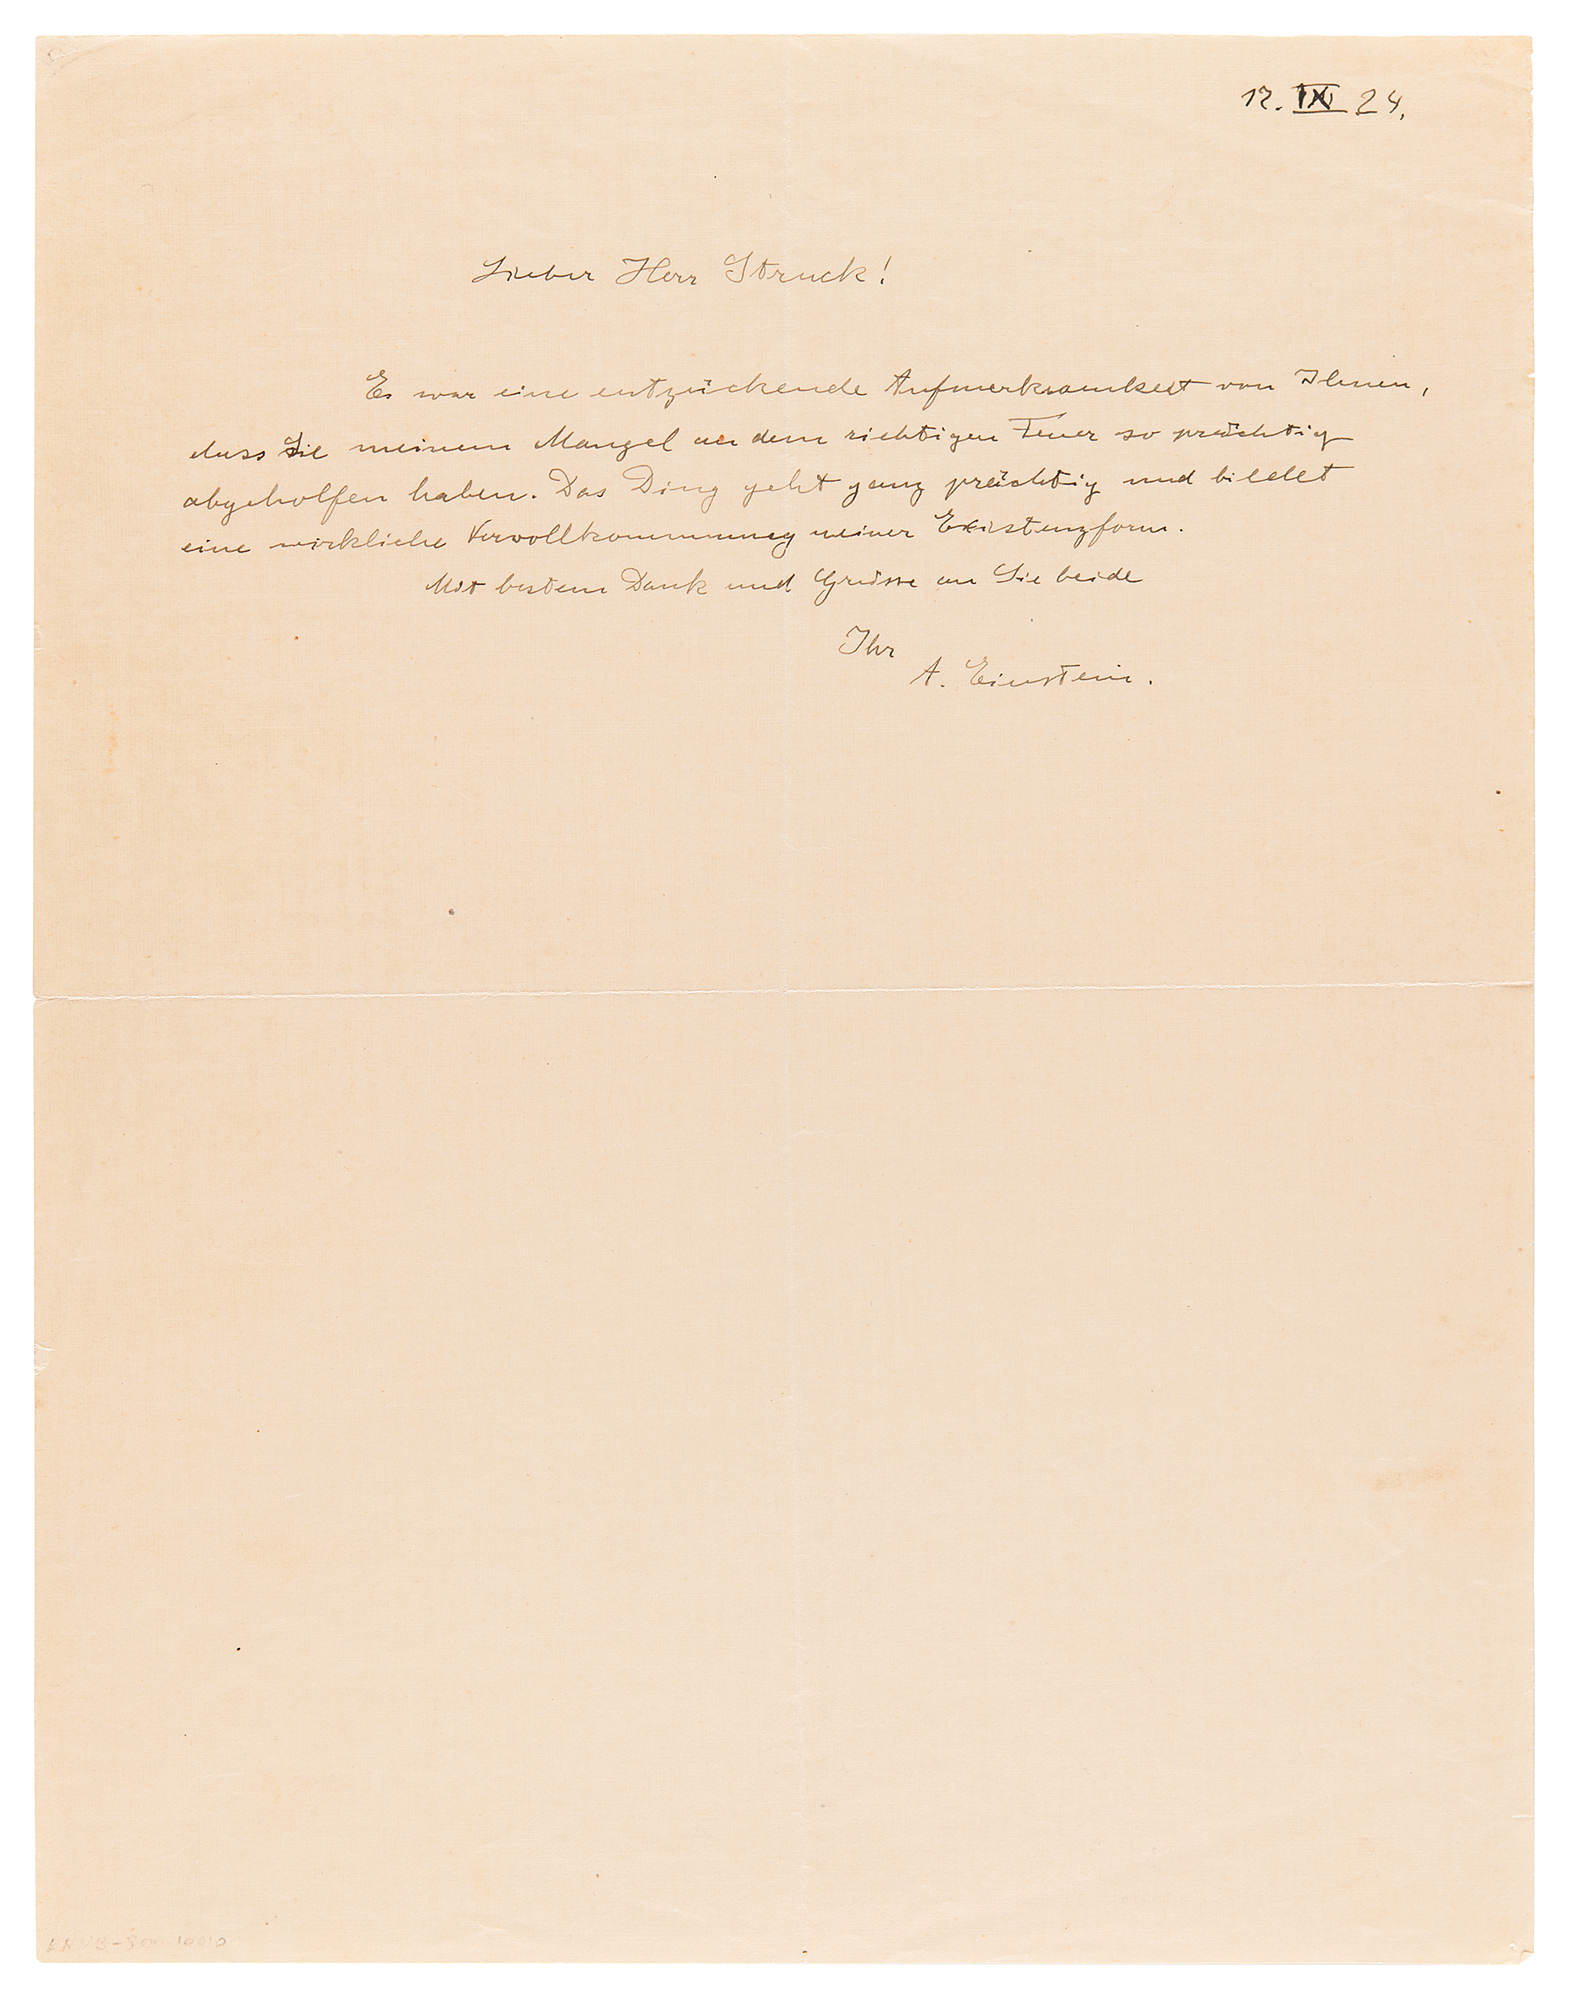 12. IX 24.
Lieber Herr Struck!
Es war eine entzückende Aufmerksamkeit von Ihnen,
dass Sie meinem Mangel an dem richtigen Feuer so prächtig
abgeholfen haben. Das Ding geht ganz prächtig und bildet
eine wirkliche Vervollkommnung meiner Existenzform.
Mit bestem Dank und Grüsse an Sie beide
Ihr
A. Einstein.